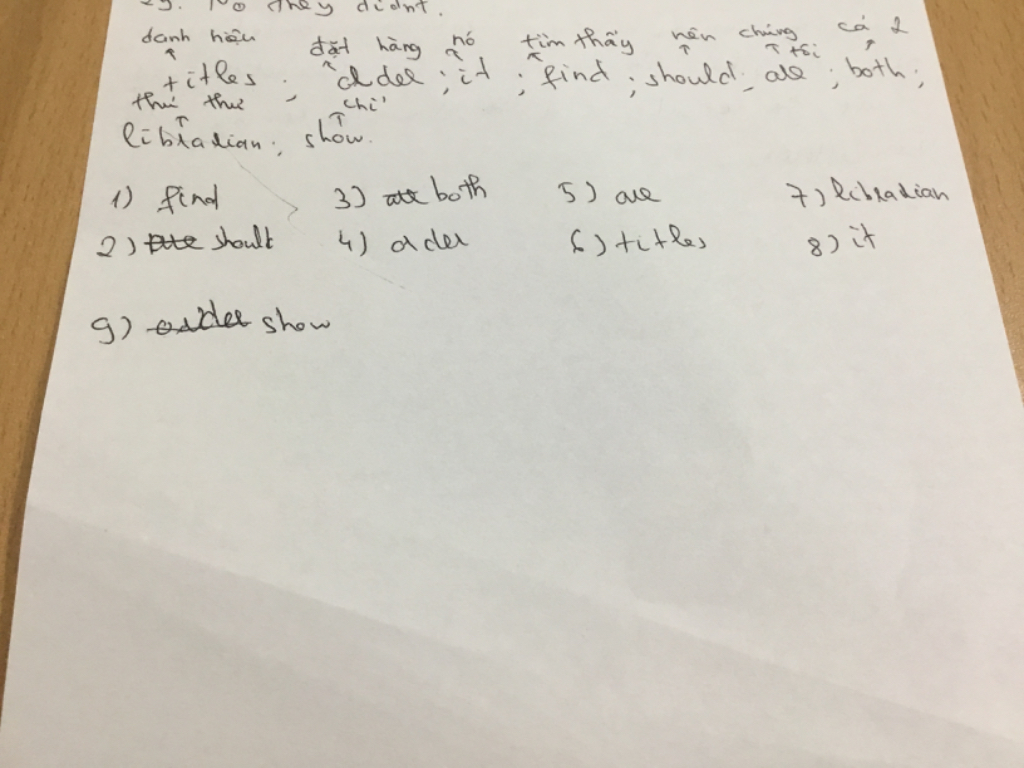 29. No they didnt.
danh hiệu đặt hàng nó tìm thấy nên chúng tôi cả 2
titles; order; it; find; should; are; both;
thủ thư chỉ
librarian; show.
1) find 3) both 5) are 7) librarian
2) shoult 4) order 6) titles 8) it
9) show